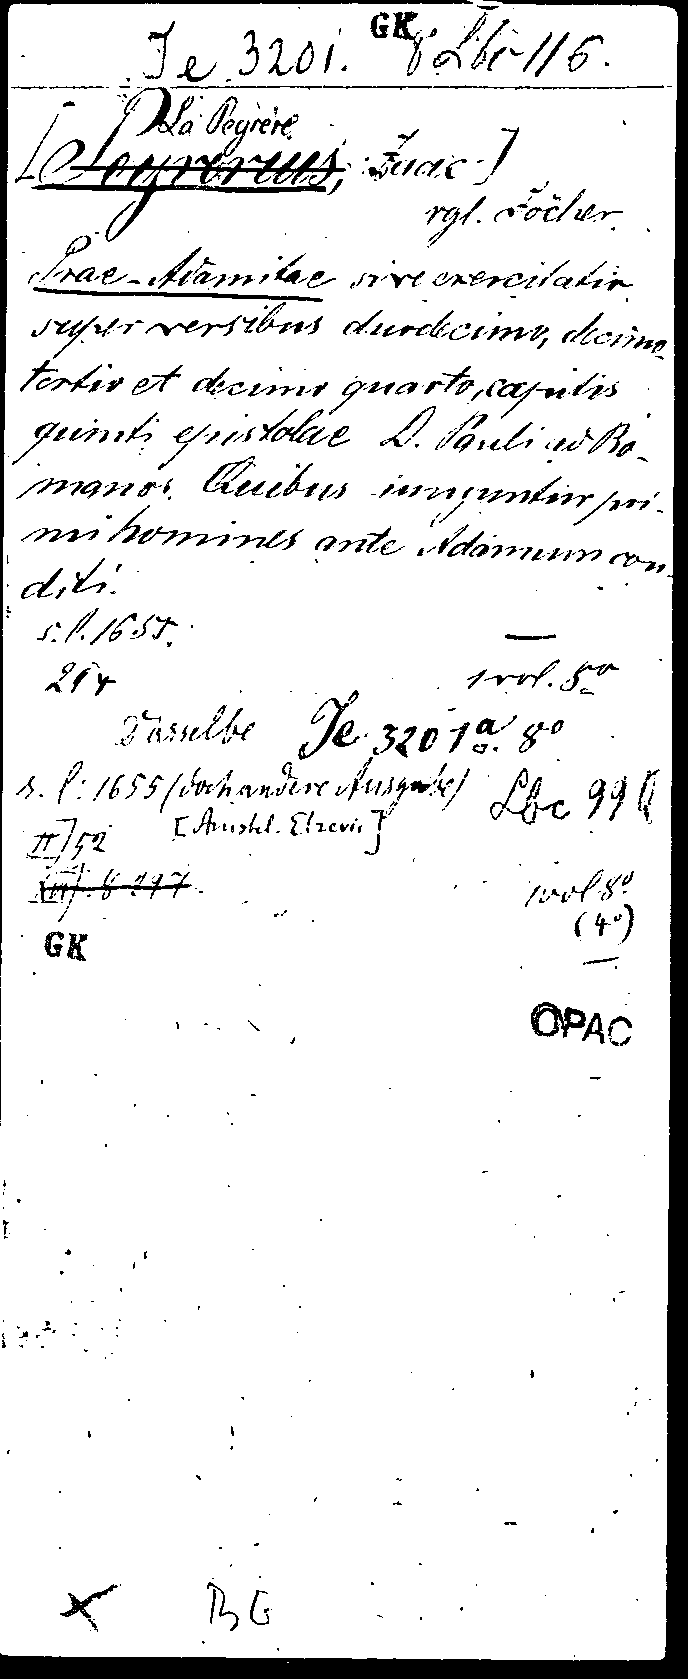 GK
Je 3201. 8° Lbc 116.
La Peyrère
[Peyrerius, Isaac.]
vgl. Jöcher.
Prae-Adamitae sive exercitatio
super versibus duodecimo, decimo
tertio et decimo quarto, capitis
quinti epistolae D. Pauli ad Ro-
manos. Quibus inunguntur pri-
mi homines ante Adamum con-
diti.
s. l. 1655.
1 vol. 8°
Dasselbe Je 3201a 8°
s. l. 1655 (doch andere Ausgabe) Lbc 99
[Amstel. Elzevir]
II) 52
1 vol 8°
(4°)
GK
OPAC
x BG